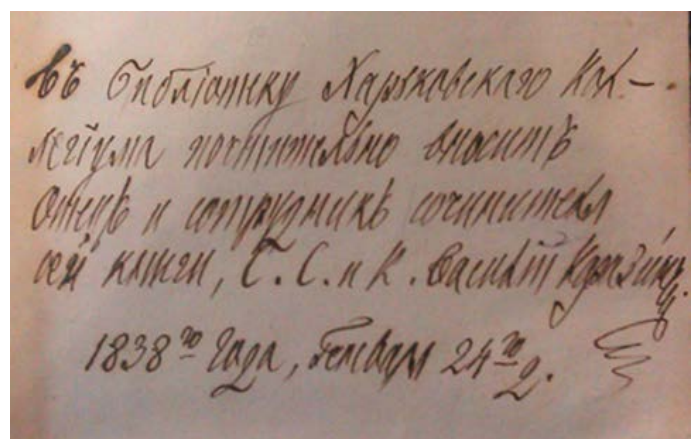 въ Библіотику Харьковскаго Кол-
легіума почтительно вноситъ
отецъ и сотрудникъ сочинителя
сей книги, С. С. и К. Василій Каразинъ.
1838го года, Генваря 24го д.